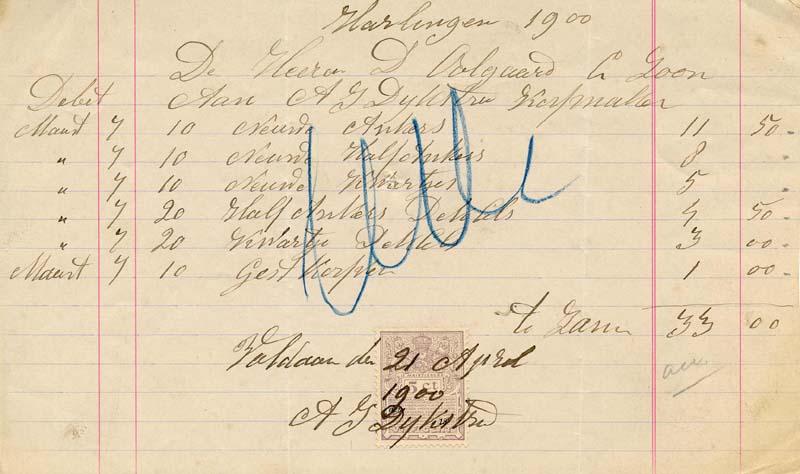 Harlingen 1900
De Heeren D Oolgaard & Zoon
Debet Aan A G Dykstra Korfmaker
Maart 7 10 Neurde Ankers 11 50 -
" 7 10 Neurde Halfankers 8 -
" 7 10 Neurde Kwartjes 5 -
" 7 20 Half Ankers Deksels 4 50 -
" 7 20 Kwartje Deksels 3 00 -
Maart 7 10 Gest Korpen 1 00 -
te Zamen 33 00
Voldaan den 21 April
5 ct
1900
A G Dykstra